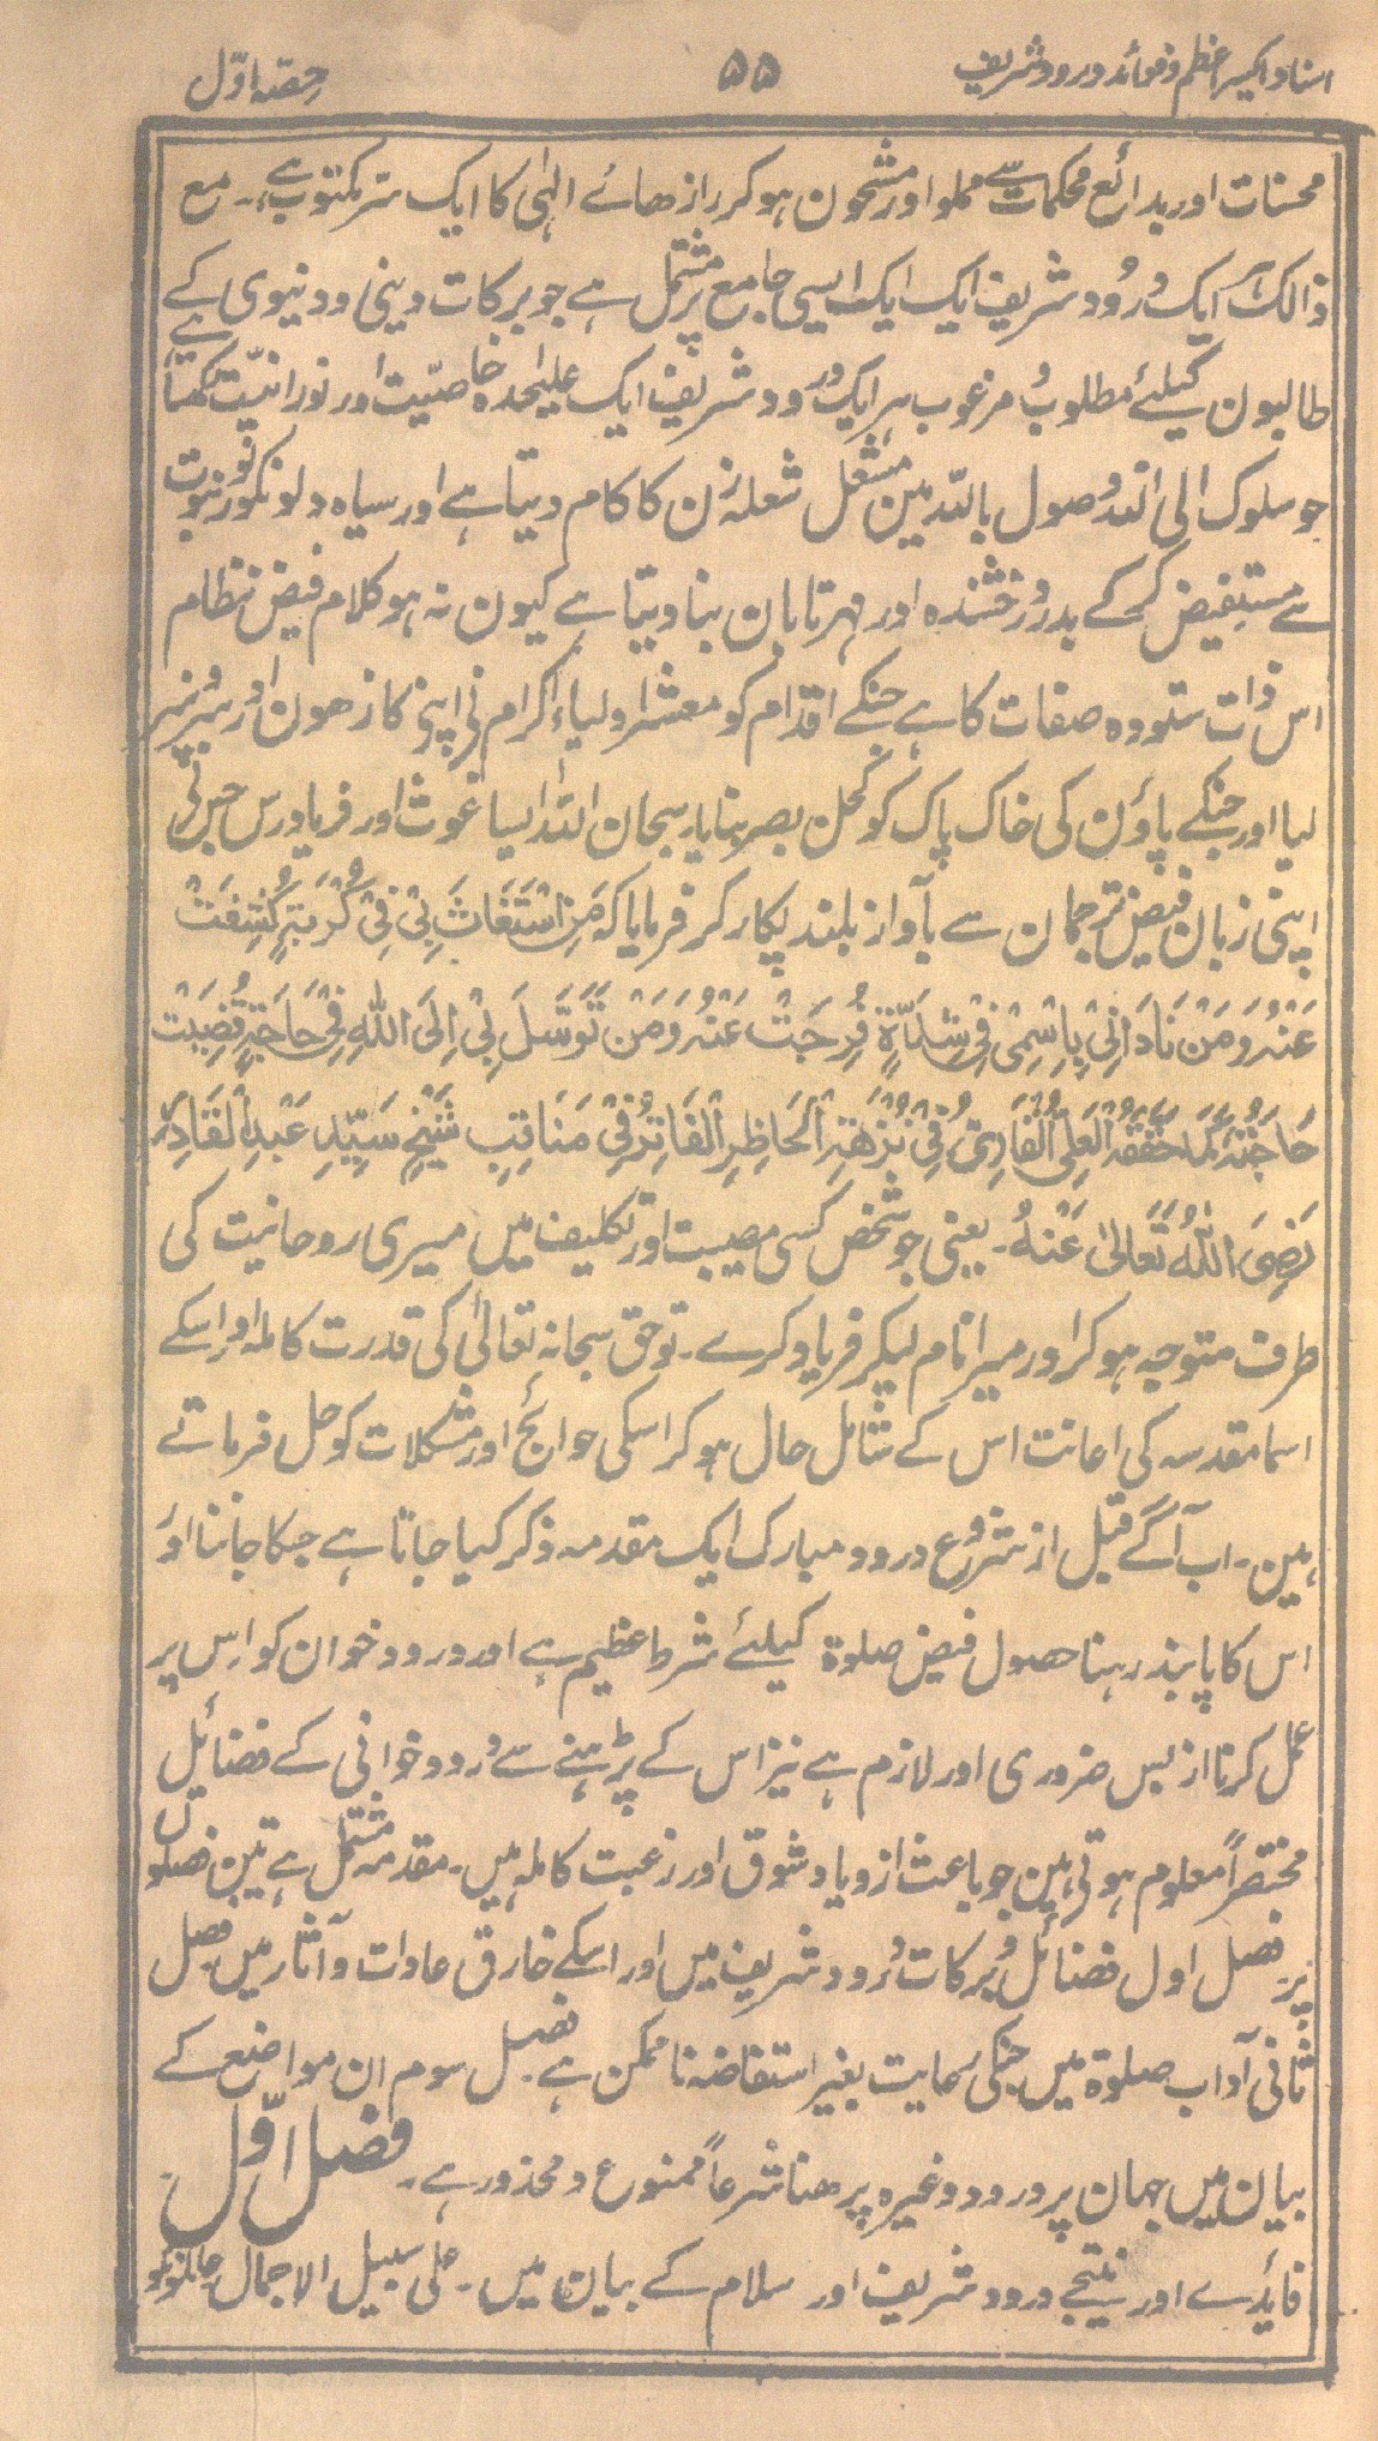 اسناد اکسیر اعظم و فوائد درود شریف ۵۵ حصّہ اوّل
محسنات اور بدائع محکمات سے مملو اور مشحون ہوکر رازھائے الٰہی کا ایک سَرِ مکتوب ہے۔ مع
ذالک آیک دُرُود شریف ایک ایک ایسی جامع پر مشتمل ہے جو برکات دینی و دنیوی کے
طالبون کیلئے مطلوبُ مرغوب ہر ایک درود شریف ایک علیٰحدہ خاصیّت اور نورانیّت رکھتا ہے
جو سلوک الی اللہ وصول باللہ مین مشعل شعلہ زن کا کام دیتا ہے اور سیاہ دلونکو نور نبوت
سے مستفیض کرکے بدر رخشندہ اور مہر تابان بنا دیتا ہے کیون نہ ہو کلام فیض نظام
اس ذات ستودہ صفات کا ہے جنکے اقدام کو معشر اولیاءِ کرام نی اپنی کاندھون اور سَروُنپر
لیا اور جنکے پاؤن کی خاک پاک کو کحلِ بصر بنایا۔ سبحان اللہ ایسا غوث اور فریادرس جس نی
اپنی زبان فیض ترجمان سے بآواز بلند پکار کر فرمایا کہ مَنِ اسْتَغَاثَ بِیْ فِیْ کُرْبَۃٍ کُشِفَتْ
عَنْہُ وَمَنْ نَادَانِیْ بِاِسْمِیْ فِیْ شِدَّۃٍ فُرِجَتْ عَنْہُ وَمَنْ تَوَسَّلَ بِیْ اِلَی اللّٰہِ فِیْ حَاجَۃٍ قُضِیَتْ
حَاجَتُہٗ کَمَا حَقَّقَہُ الْعَلِیُّ الْقَارِیُّ فِیْ نُزْھَۃِ الْخَاطِرِ الْفَاتِرُ فِیْ مَنَاقِبِ شَیْخِ سَیِّدِ عَبْدِ الْقَادِرِ
رَضِیَ اللّٰہُ تَعَالٰی عَنْہُ۔ یعنی جو شخص کسی مصیبت اور تکلیف میں میری روحانیت کی
طرف متوجہ ہوکر اور میرا نام لیکر فریاد کرے۔ تو حق سبحانہ تعالیٰ کی قدرت کاملہ اور اسکے
اسما مقدسہ کی اعانت اس کے شامل حال ہو کر اسکی حوائج اور مشکلات کو حل فرماتے
ہین۔ اب آگے قبل از شروُع درود مبارک ایک مقدمہ ذکر کیا جاتا ہے جسکا جاننا اور
اس کا پابند رہنا حصول فیض صلوۃ کیلئے شرط عظیم ہے اور درود خوان کو اِس پر
عمل کرنا از بس ضروری اور لازم ہے نیز اس کے پڑہنے سے دُرود خوانی کے فضائیل
مختصراً معلوم ہوتی ہین جو باعث ازدیاد شوق اور رغبت کاملہ ہیں۔ مقدمہ مشتمل ہے تین فصلوں
پر۔ فصل اول فضائل وُبرکات دُرود شریف میں اور اسکے خارق عادات و آثار میں فصل
ثانی آداب صلوۃ میں جنکی رعایت بغیر استفاضہ ناممکن ہے۔ فصل سوم ان مواضع کے
بیان میں جہان پر درود وغیرہ پڑھنا شرعاً ممنوع و محذور ہے۔ فصل اوّل۔
فائدے اور نتیجے درود شریف اور سلام کے بیان میں۔ علی سبیل الاجمال